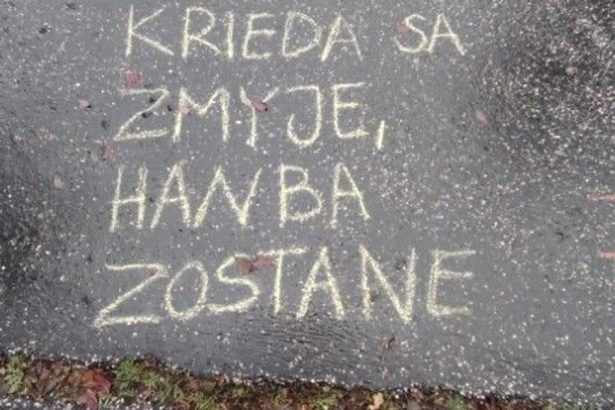 KRIEDA SA
ZMYJE,
HANBA
ZOSTANE